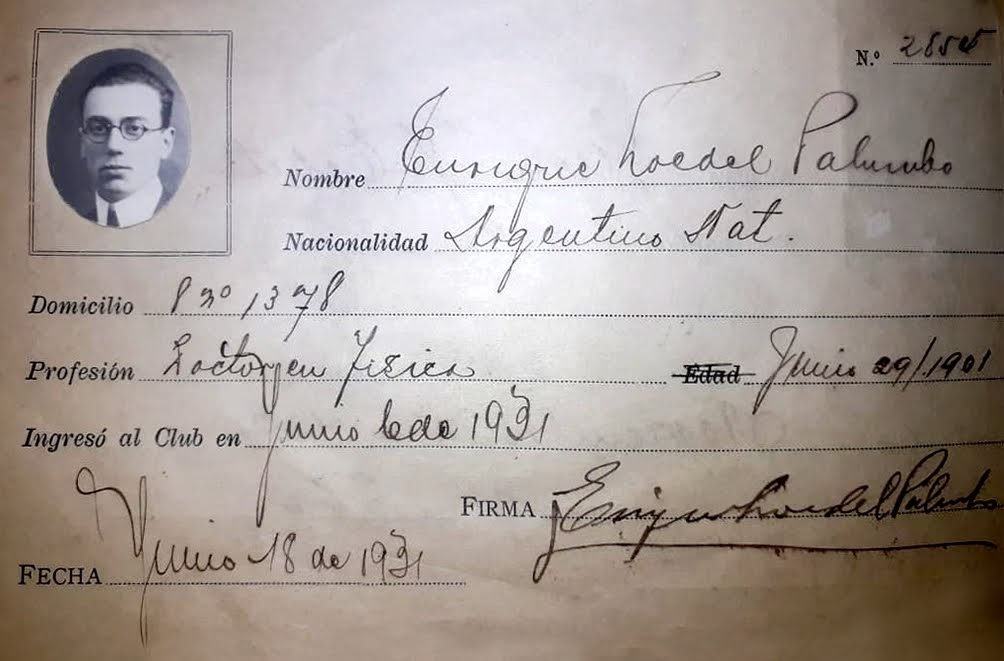 N.º 2854
Nombre Enrique Loedel Palumbo
Nacionalidad Argentino Nat.
Domicilio 8 nº 1378
Profesión Doctor en Fisica Edad Junio 29/1901
Ingresó al Club en Junio 6 de 1931
FIRMA Enrique Loedel Palumbo
FECHA Junio 18 de 1931